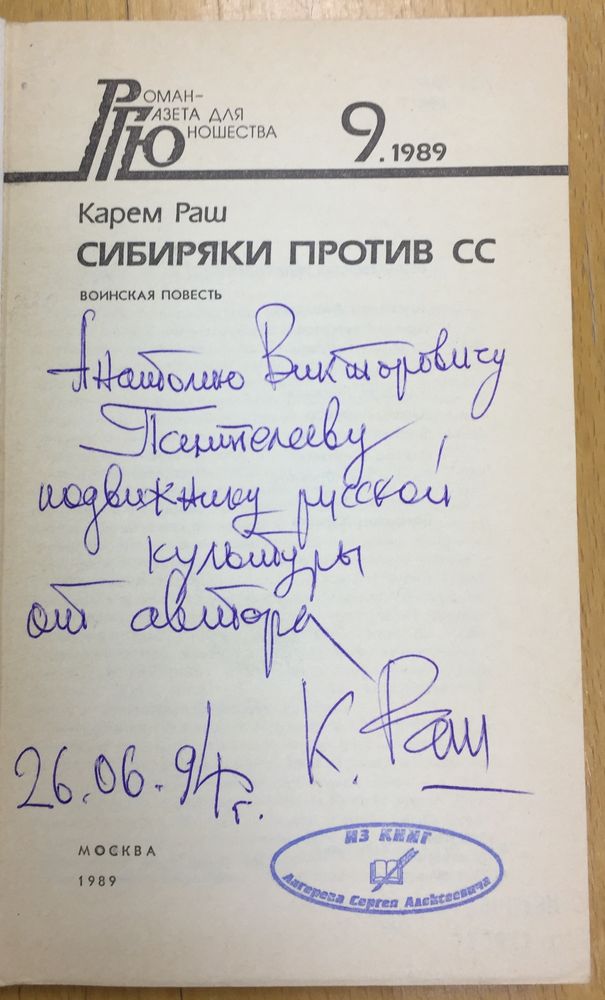 РОМАН-
ГАЗЕТА ДЛЯ
ЮНОШЕСТВА
9.1989
Карем Раш
СИБИРЯКИ ПРОТИВ СС
ВОИНСКАЯ ПОВЕСТЬ
Анатолию Викторовичу
Пантелееву
подвижнику русской
культуры
от автора
К. Раш
26.06.94 г.
МОСКВА
1989
ИЗ КНИГ
Сергея Алексеевича